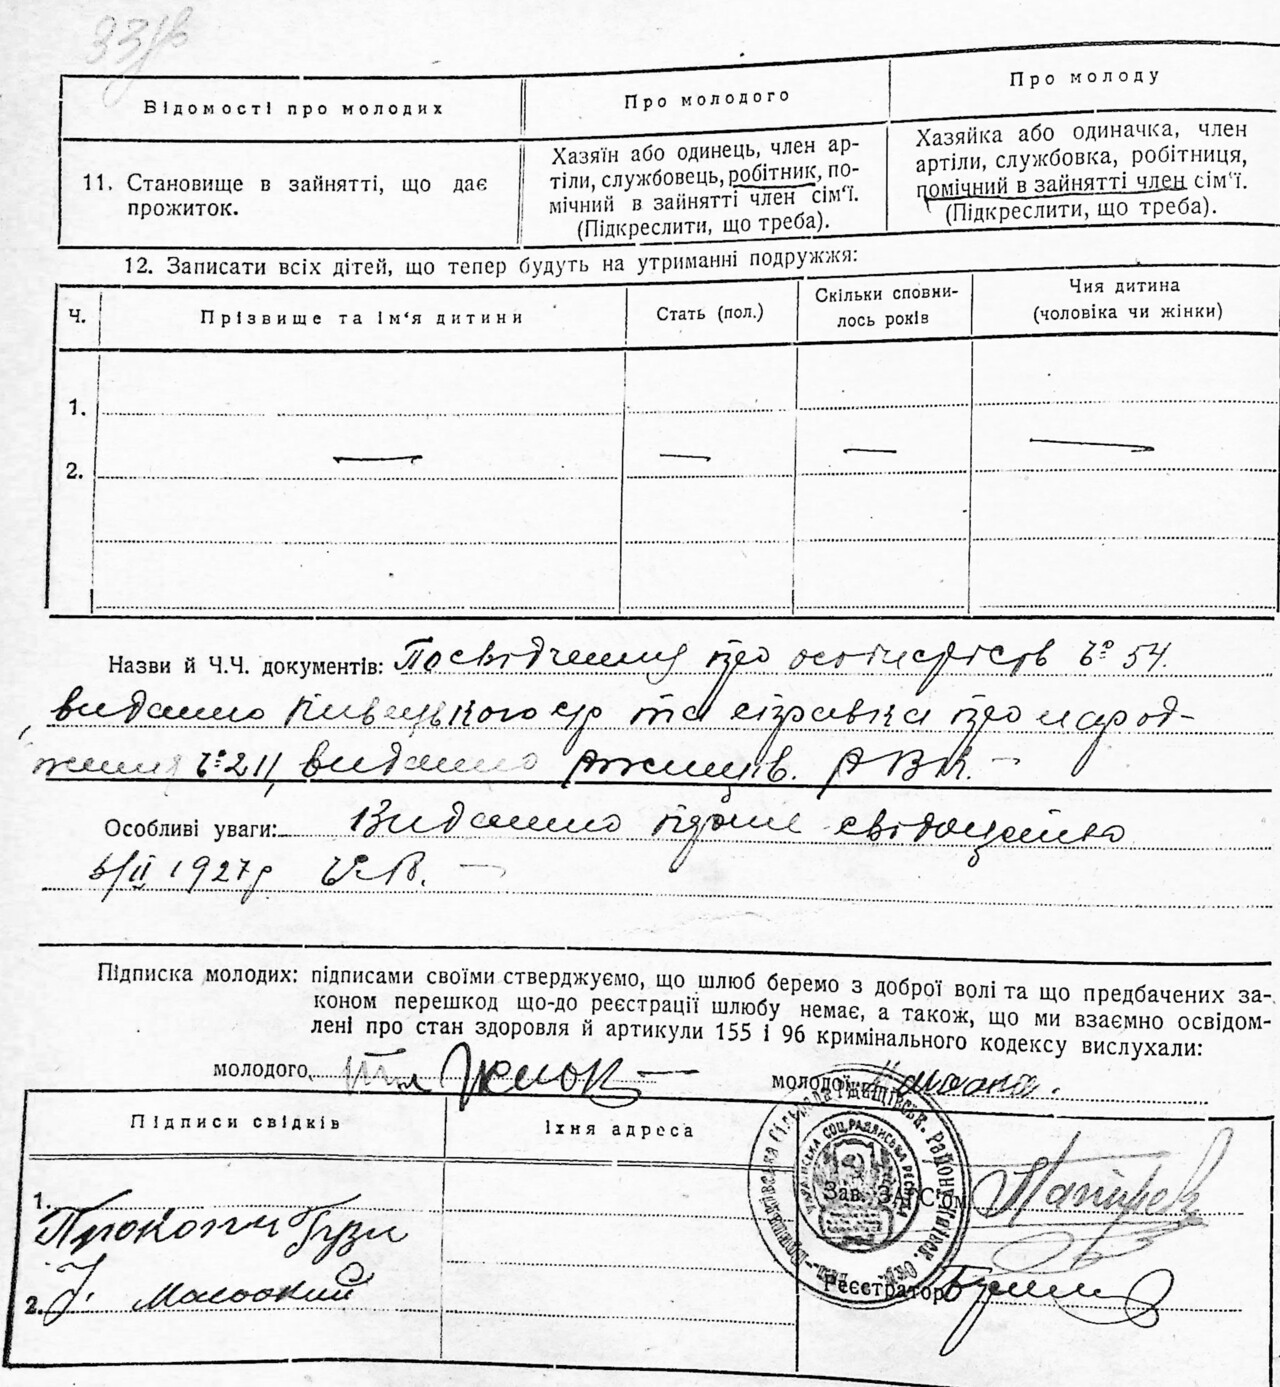 Відомості про молодих
Про молодого
Про молоду
11. Становище в зайнятті, що дає
прожиток.
Хазяїн або одинець, член ар-
тіли, службовець, робітник, по-
мічний в зайнятті член сім'ї.
(Підкреслити, що треба).
Хазяйка або одиначка, член
артіли, службовка, робітниця,
помічний в зайнятті член сім'ї.
(Підкреслити, що треба).
12. Записати всіх дітей, що тепер будуть на утриманні подружжя:
Ч.
Прізвище та ім'я дитини
Стать (пол.)
Скільки сповни-
лось років
Чия дитина
(чоловіка чи жінки)
1.
2.
Назви й Ч.Ч. документів: Посвідчення про № 54.
видано та справка про народ-
ження № 211, видано РВК.
Особливі уваги: Видано
5/II 1927р
Підписка молодих: підписами своїми стверджуємо, що шлюб беремо з доброї волі та що предбачених за-
коном перешкод що-до реєстрації шлюбу немає, а також, що ми взаємно освідом-
лені про стан здоровля й артикули 155 і 96 кримінального кодексу вислухали:
молодого
молодої
Підписи свідків
Їхня адреса
Зав. ЗАГС'ом
1. Прокопи Гузи
2.
Реєстратор